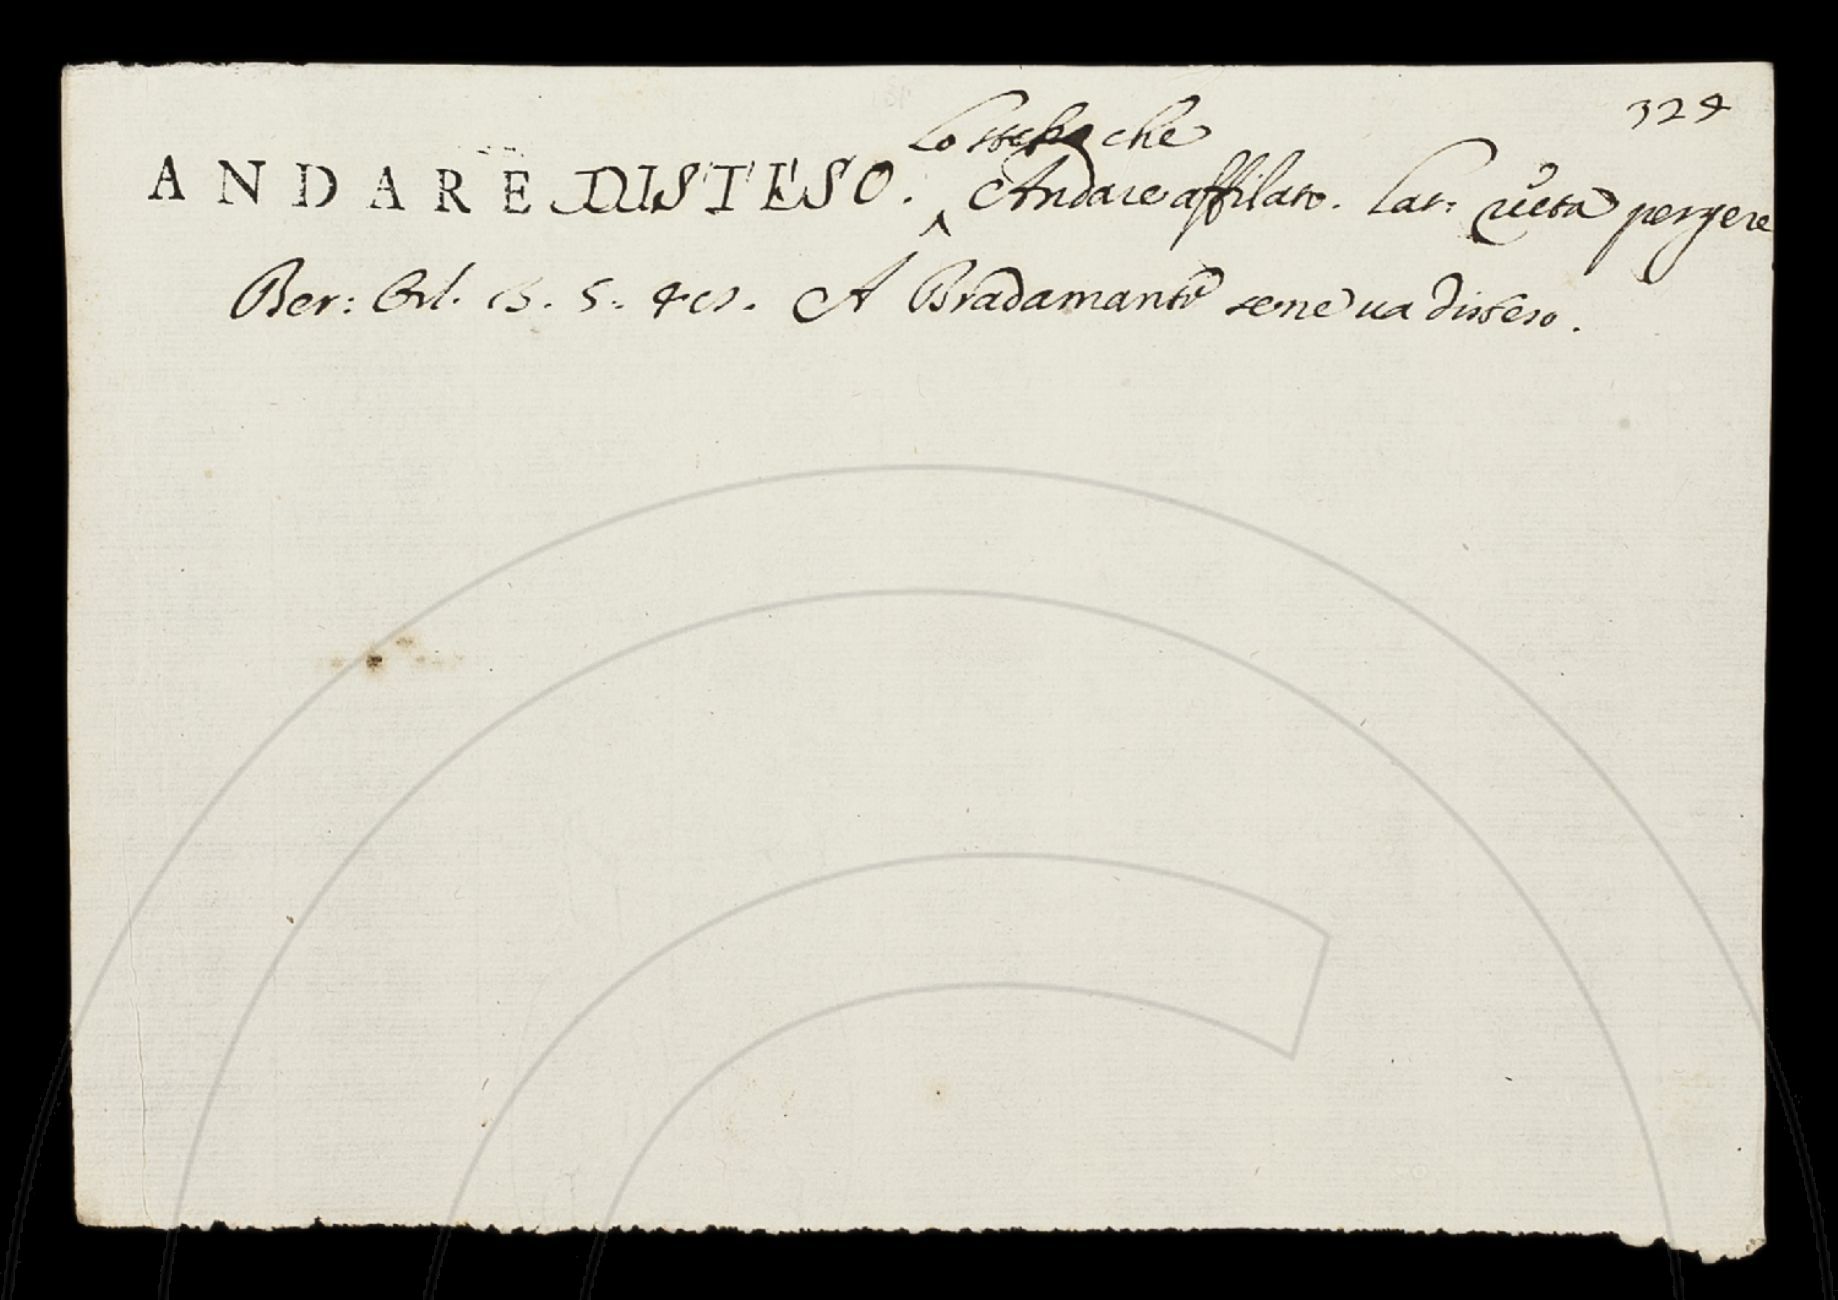 324
Lo stesso che
ANDARE DISTESO. Andare affilato. Lat: recta pergere
Ber: Orl. A Bradamante sene va disteso.